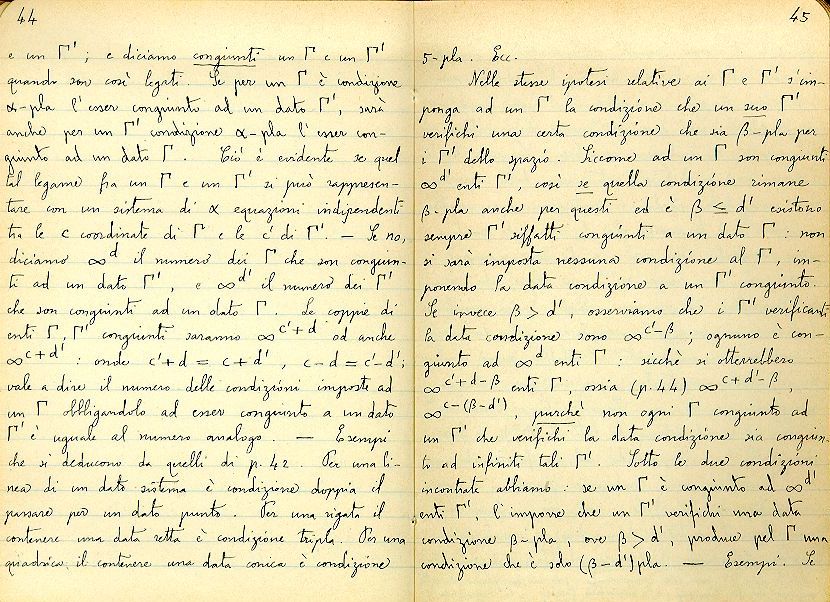 44
e un Γ' ; e diciamo congiunti un Γ e un Γ'
quando son così legati. Se per un Γ è condizione
α-pla l'esser congiunto ad un dato Γ', sarà
anche per un Γ' condizione α-pla l'esser con-
giunto ad un dato Γ. Ciò è evidente se quel
tal legame fra un Γ e un Γ' si può rappresen-
tare con un sistema di α equazioni indipendenti
tra le c coordinate di Γ e le c' di Γ'. — Se no,
diciamo ∞^d il numero dei Γ che son congiun-
ti ad un dato Γ', e ∞^d' il numero dei Γ'
che son congiunti ad un dato Γ. Le coppie di
enti Γ, Γ' congiunti saranno ∞^c'+d od anche
∞^c+d' : onde c'+d = c+d' , c-d = c'-d' ;
vale a dire il numero delle condizioni imposte ad
un Γ obbligandolo ad esser congiunto a un dato
Γ' è uguale al numero analogo. — Esempi
che si deducono da quelli di p. 42. Per una li-
nea di un dato sistema è condizione doppia il
passare per un dato punto. Per una rigata il
contenere una data retta è condizione tripla. Per una
quadrica il contenere una data conica è condizione
45
5-pla. Ecc.
Nelle stesse ipotesi relative ai Γ e Γ' s'im-
ponga ad un Γ la condizione che un suo Γ'
verifichi una certa condizione che sia β-pla per
i Γ' dello spazio. Siccome ad un Γ son congiunti
∞^d' enti Γ', così se quella condizione rimane
β-pla anche per questi ed è β ≤ d' esistono
sempre Γ' siffatti congiunti a un dato Γ : non
si sarà imposta nessuna condizione al Γ, im-
ponendo la data condizione a un Γ' congiunto.
Se invece β > d', osserviamo che i Γ' verificanti
la data condizione sono ∞^c'-β ; ognuno è con-
giunto ad ∞^d enti Γ : sicchè si otterrebbero
∞^c'+d-β enti Γ, ossia (p. 44) ∞^c+d'-β ,
∞^c-(β-d') , purchè non ogni Γ congiunto ad
un Γ' che verifichi la data condizione sia congiun-
to ad infiniti tali Γ'. Sotto le due condizioni
incontrate abbiamo : se un Γ è congiunto ad ∞^d'
enti Γ', l'imporre che un Γ' verifichi una data
condizione β-pla , ove β > d', produce pel Γ una
condizione che è solo (β-d')pla. — Esempi. Se